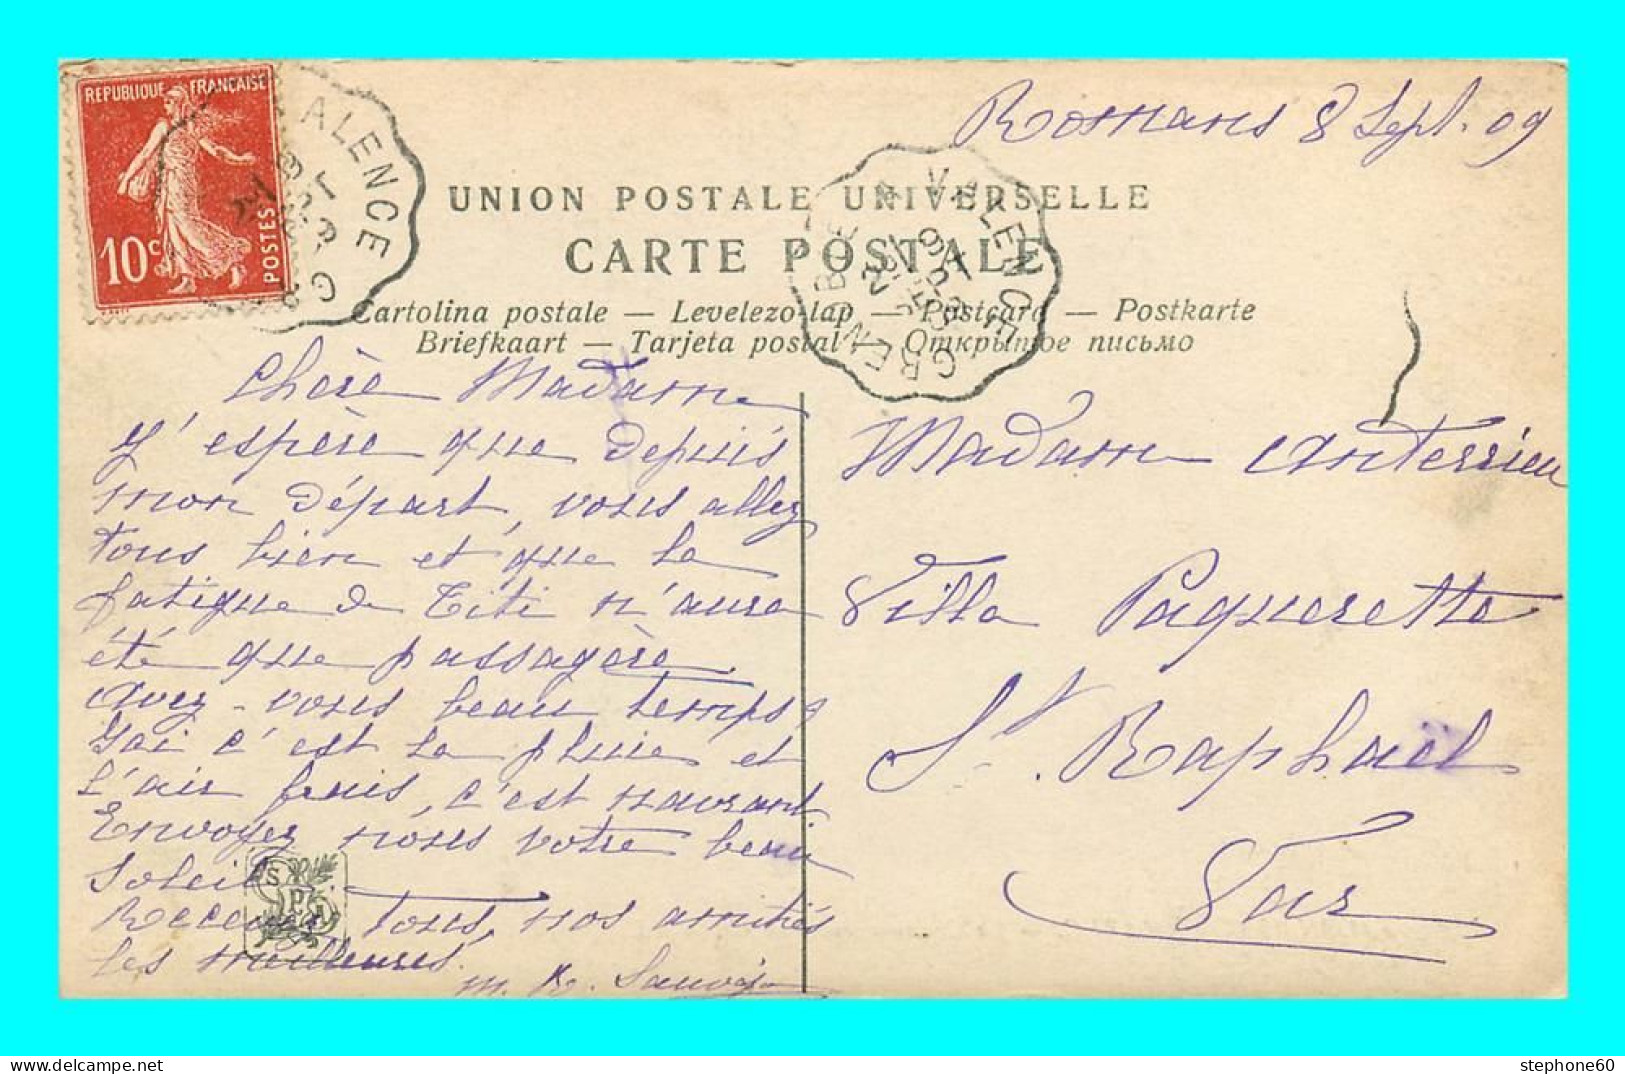 Romans 8 Sept. 09
REPUBLIQUE FRANÇAISE
10c POSTES
VALENCE
GRENOBLE A VALENCE
UNION POSTALE UNIVERSELLE
CARTE POSTALE
Cartolina postale — Levelezo-lap — Postcard — Postkarte
Briefkaart — Tarjeta postal — Открытое письмо
Chère Madame
J'espère que depuis
mon départ, vous allez
tous bien et que la
fatigue de Titi n'aura
été que passagère
Avez-vous beau temps?
Ici c'est la pluie et
l'air frais, c'est navrant.
Envoyez nous votre beau
Soleil.
Recevez tous, nos amitiés
les meilleures.
M. R.
Madame Anterrieu
Villa Paquerette
St. Raphaël
Var
SPA
stephone60